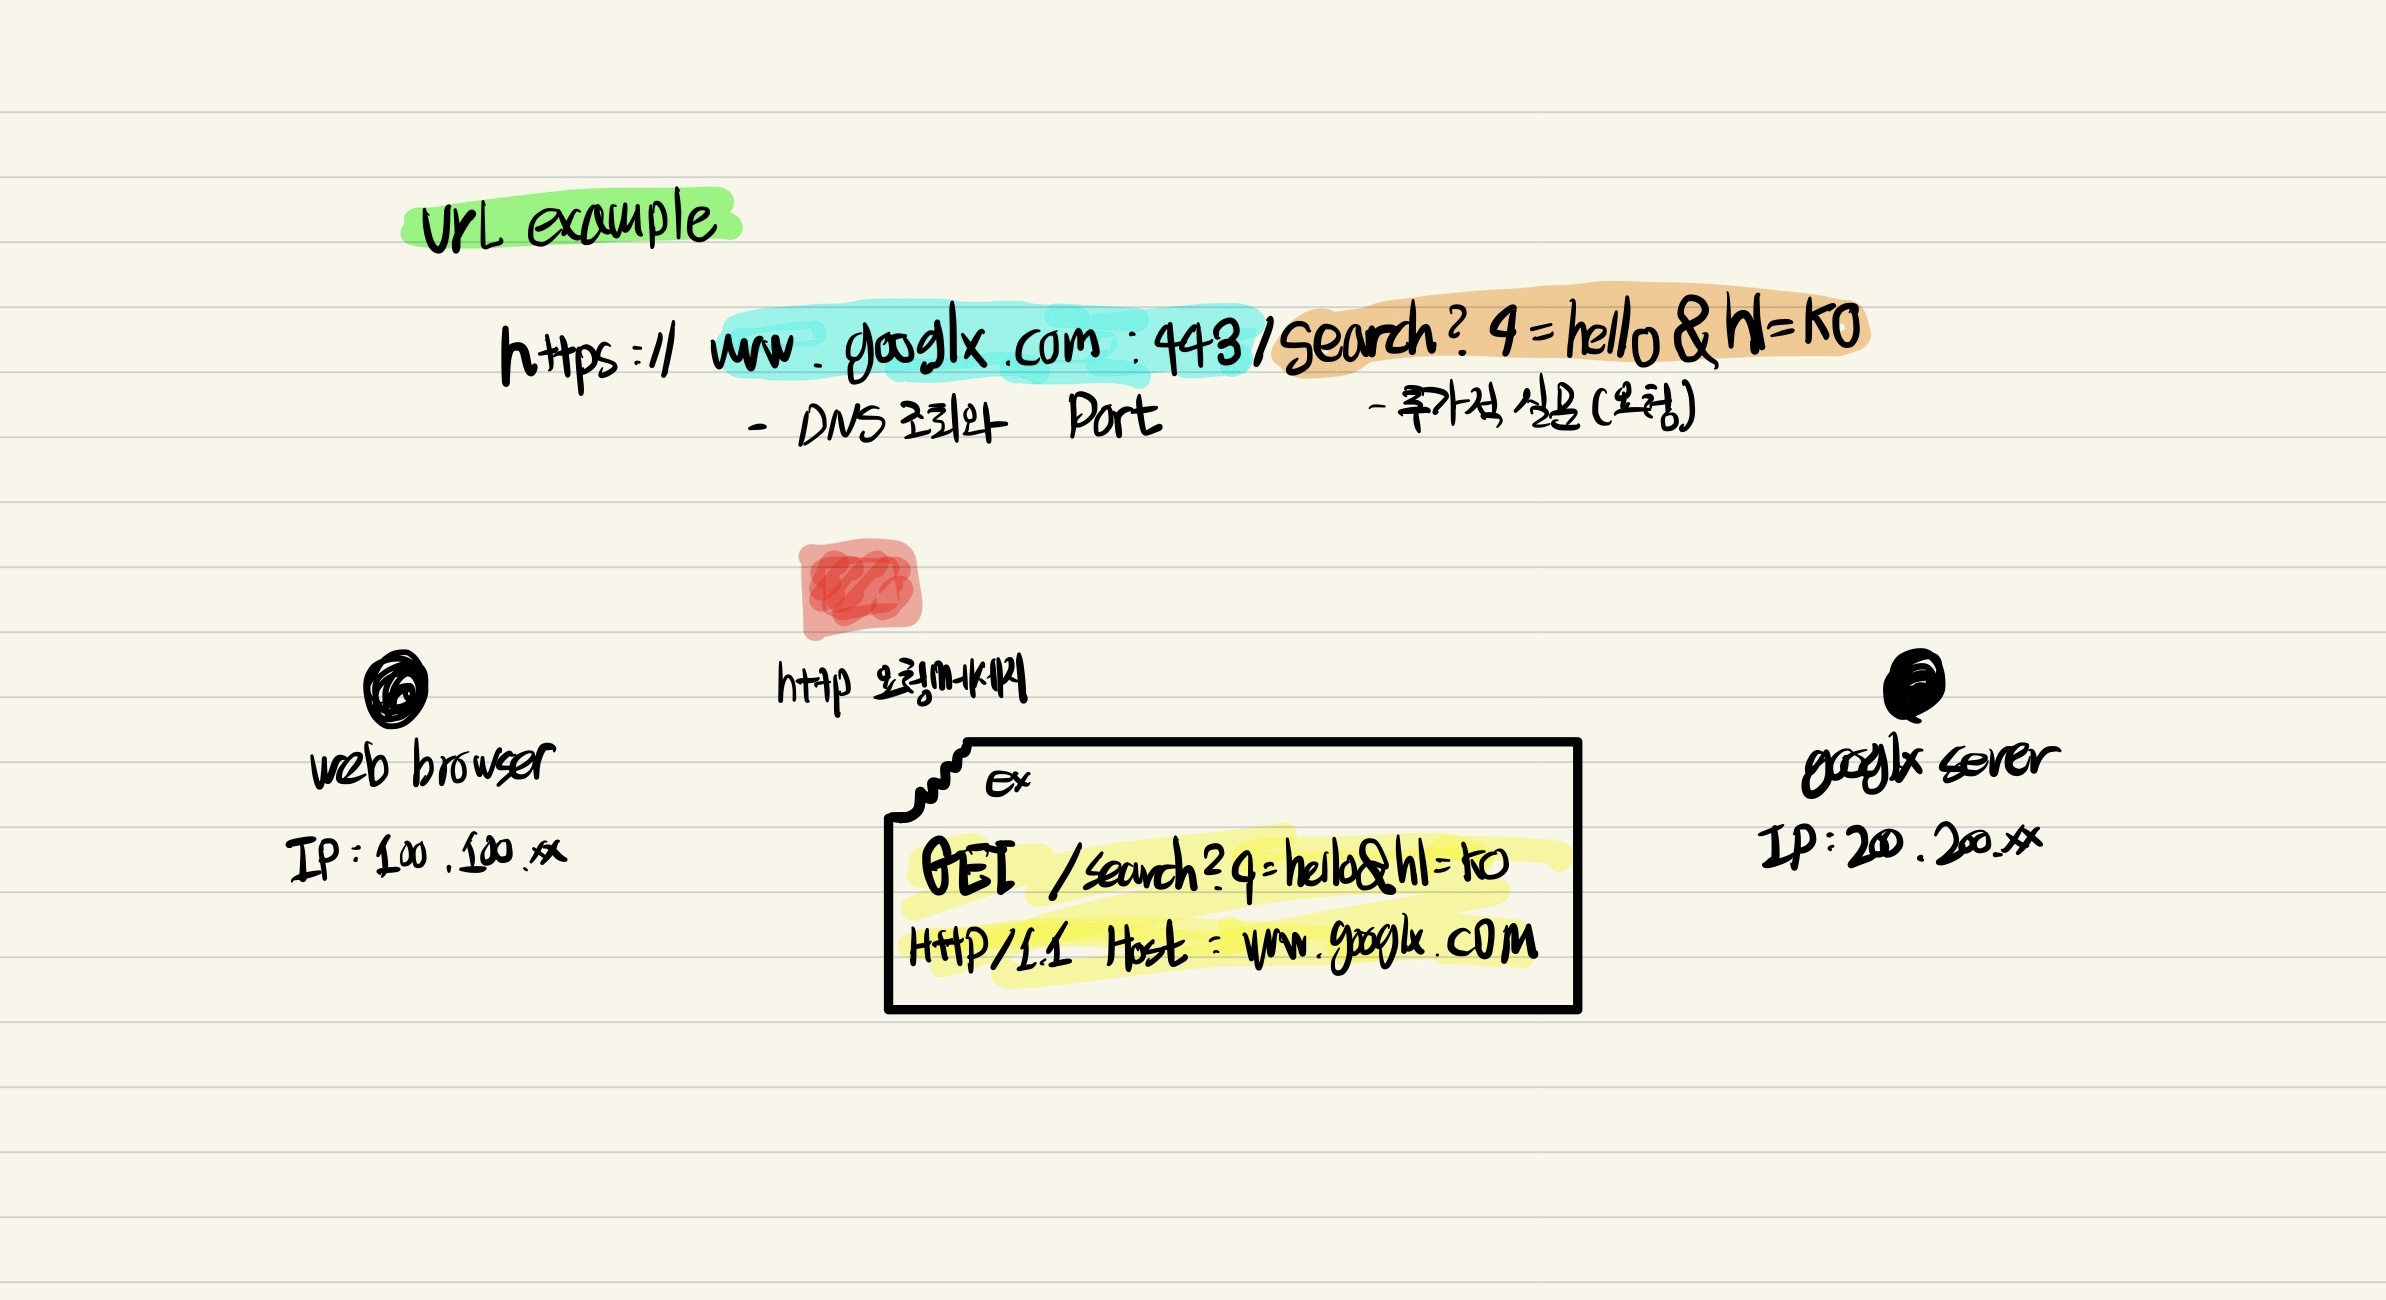 Url example
https:// www.googlx.com:443/search?q=hello&hl=ko
- DNS 조회와 Port
- 추가적 질문(요청)
http 요청메세지
web browser
IP: 100.100.xx
ex
GET /search?q=hello&hl=ko
HTTP/1.1 Host: www.googlx.com
googlx server
IP: 200.200.xx